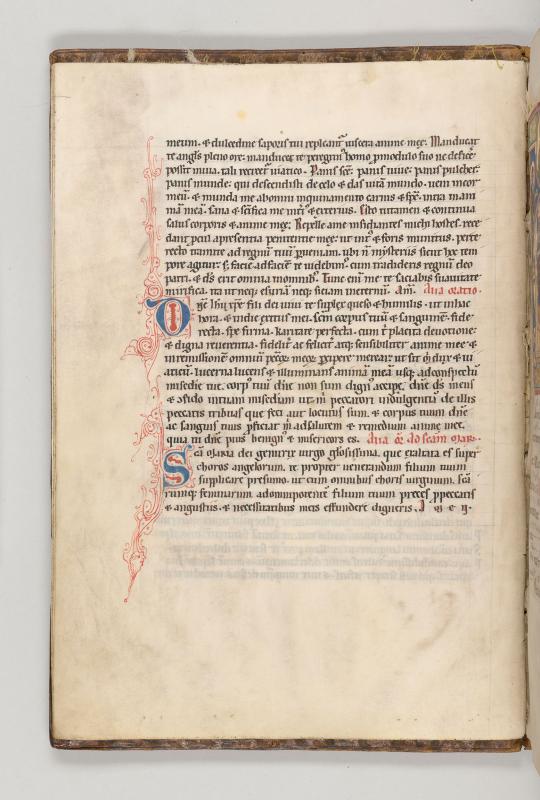 meum. & dulcedine saporis tui repleant᷑ uiscera anime męe. Manducat
te angl̃s pleno ore: manducet te peregrin᷒ homo ꝑ modulo suo ne deficẽ
possit in uia. tali recreat᷒ uiatico. Panis sc̃e: panis uiue: panis pulcher:
panis munde: qui descendisti de celo & das uitã mundo. ueni in cor
meũ. & munda me ab omni inquinamento carnis & sp̃c. intra in ani
mã meã. sana & sc̃ifica me int᷒i᷒ & exterius. Esto tutamen & continua
salus corporis & anime męe. Repelle a me insidiantes michi hostes. rece
dant ꝓcul a presentia potentie tuę: ut int᷒ & foris munitus. ꝑ te
recto tramite ad regnũ tuũ ꝑueniam. ubi ñ mỹsteriis sicut hoc tem
pore agitur. s; facie ad faciẽ te uidebim᷒. cum tradideris regnũ deo
patri. & d̃s erit omnia in omnib᷒. Tunc eni᷒ me te saciabis sacietate
mirifica. ita ut neq; esuriã neq; siciam in eternũ. Am̃. Alia oratio.
Dñe ihũ xp̃e fili dei uiui te suplex queso & humilis. ut in hac
hora. & in die exitus mei. sc̃m corpus tuũ & sanguinẽ. fide
recta. spe firma. karitate perfecta. cum t᷒ placita deuotione.
& digna reuerentia. fidelit᷒ ac felicit᷒ atq; sensibiliter anime mee &
in remissionẽ omniũ pecc̃ meoꝝ ꝑcipere merear. ut sit m̃ dux & ui
aticũ. lucerna lucens & illuminans animã meã usq; ad conspectũ
misc̃die tuę. corp᷒ tuũ dñe non sum dign᷒ accipe. dñe d̃s meus
& ꝯfido in tuam misc̃diam ut m̃ peccatori indulgentiã de illis
peccatis tribuas que feci aut locutus sum. & corpus tuum dñe
ac sanguis tuus ꝓficiat m̃ ad salutem & remedium anime meę.
quia tu dñe pius benign᷒ & misericors es. Alia or̃ ad sc̃am mari.
Sc̃a maria dei genitrix uirgo gl̃osissima. que exaltata es super
choros angelorum. te propter uenerandum filium tuum
supplicare presumo. ut cum omnibus choris uirginum. sc̃a
rumq; feminarum. ad omnipotentẽ filium tuum preces ꝓ peccatis
& angustiis. & necessitatibus meis effundere digneris.